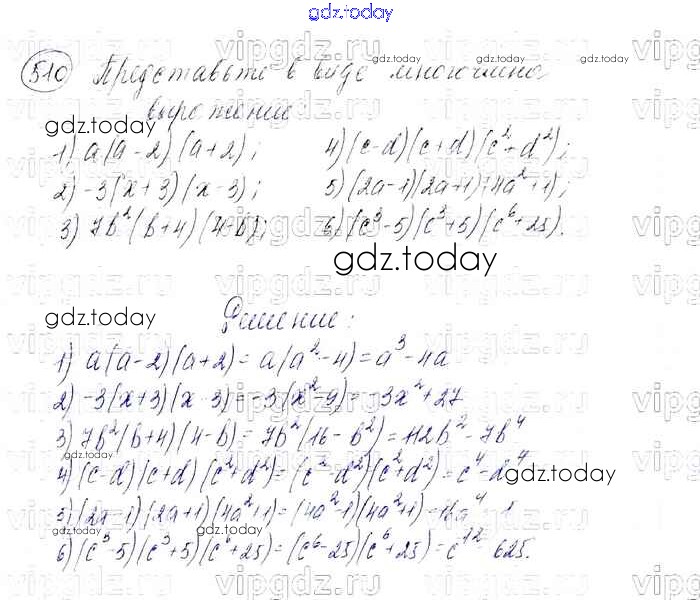 gdz.today
510 Представьте в виде многочлена
выражение:
gdz.today
1) a(a-2)(a+2);
2) -3(x+3)(x-3);
3) 7b²(b+4)(4-b);
4) (c-d)(c+d)(c²+d²);
5) (2a-1)(2a+1)(4a²+1);
6) (c³-5)(c³+5)(c⁶+25).
gdz.today
gdz.today
Решение:
1) a(a-2)(a+2) = a(a²-4) = a³-4a
2) -3(x+3)(x-3) = -3(x²-9) = -3x²+27
3) 7b²(b+4)(4-b) = 7b²(16-b²) = 112b²-7b⁴
4) (c-d)(c+d)(c²+d²) = (c²-d²)(c²+d²) = c⁴-d⁴
5) (2a-1)(2a+1)(4a²+1) = (4a²-1)(4a²+1) = 16a⁴-1
6) (c³-5)(c³+5)(c⁶+25) = (c⁶-25)(c⁶+25) = c¹²-625.